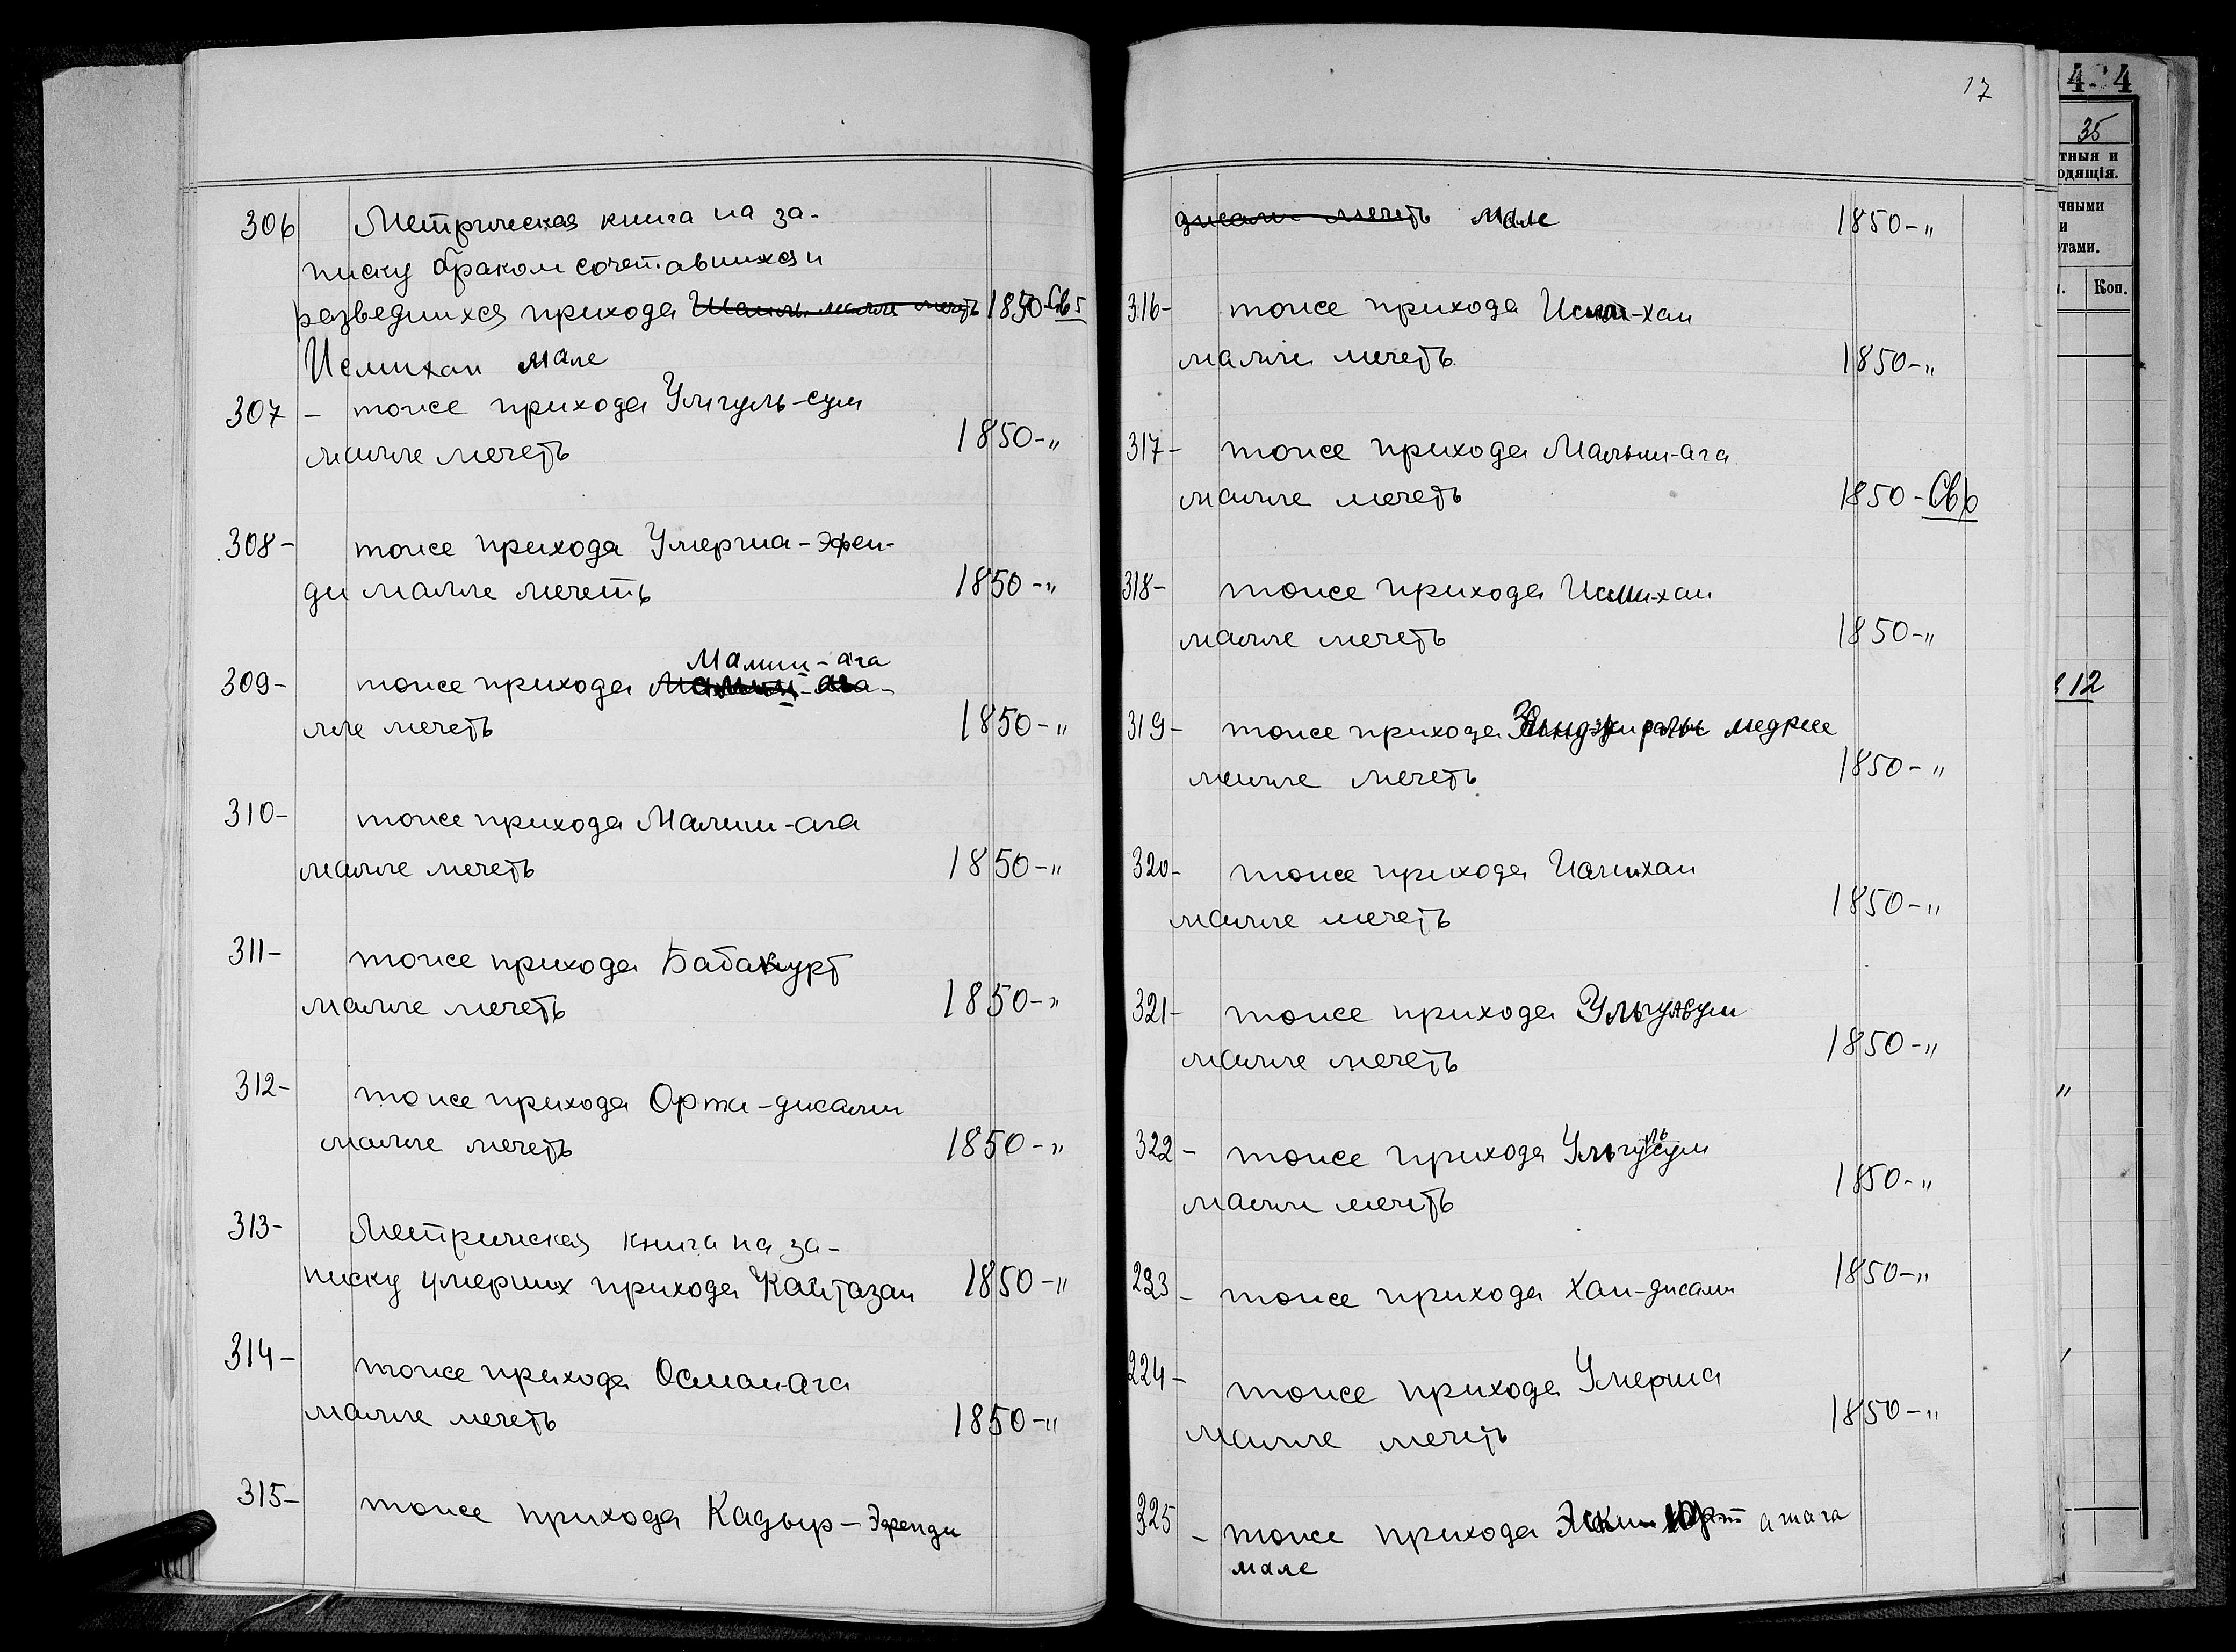 306 Метрическая книга на за-
писку браком сочетавшихся и
разведшихся прихода 1850-Св 5
Исмихан мале
307 - тоже прихода Улгуль-сум
малле мечеть 1850-"
308- тоже прихода Умерша-эфен-
ди малле мечеть 1850-"
Малыш-ага
309- тоже прихода
лле мечеть 1850-"
310- тоже прихода Малыш-ага
малле мечеть 1850-"
311- тоже прихода Бабакурт
малле мечеть 1850-"
312- тоже прихода Орта-джами
малле мечеть 1850-"
313- Метрическая книга на за-
писку умерших прихода Кайтазан 1850-"
314- тоже прихода Осман-Ага
малле мечеть 1850-"
315- тоже прихода Кадыр-Эфенди
17
джами мечеть мале 1850-"
316- тоже прихода Исми-хан
малле мечеть 1850-"
317- тоже прихода Малыш-ага
малле мечеть 1850-Св 6
318- тоже прихода Исми-хан
малле мечеть 1850-"
319- тоже прихода медресе
малле мечеть 1850-"
320- тоже прихода Исмихан
малле мечеть 1850-"
321- тоже прихода Ульгульсум
малле мечеть 1850-"
322- тоже прихода Ульгульсум
малле мечеть 1850-"
223 - тоже прихода Хан-джами 1850-"
224- тоже прихода Умерша
малле мечеть 1850-"
325 - тоже прихода Эски Юрт ашага
мале
4. 4
35
тныя и
одящія.
чными
и
ютами.
Коп.
12